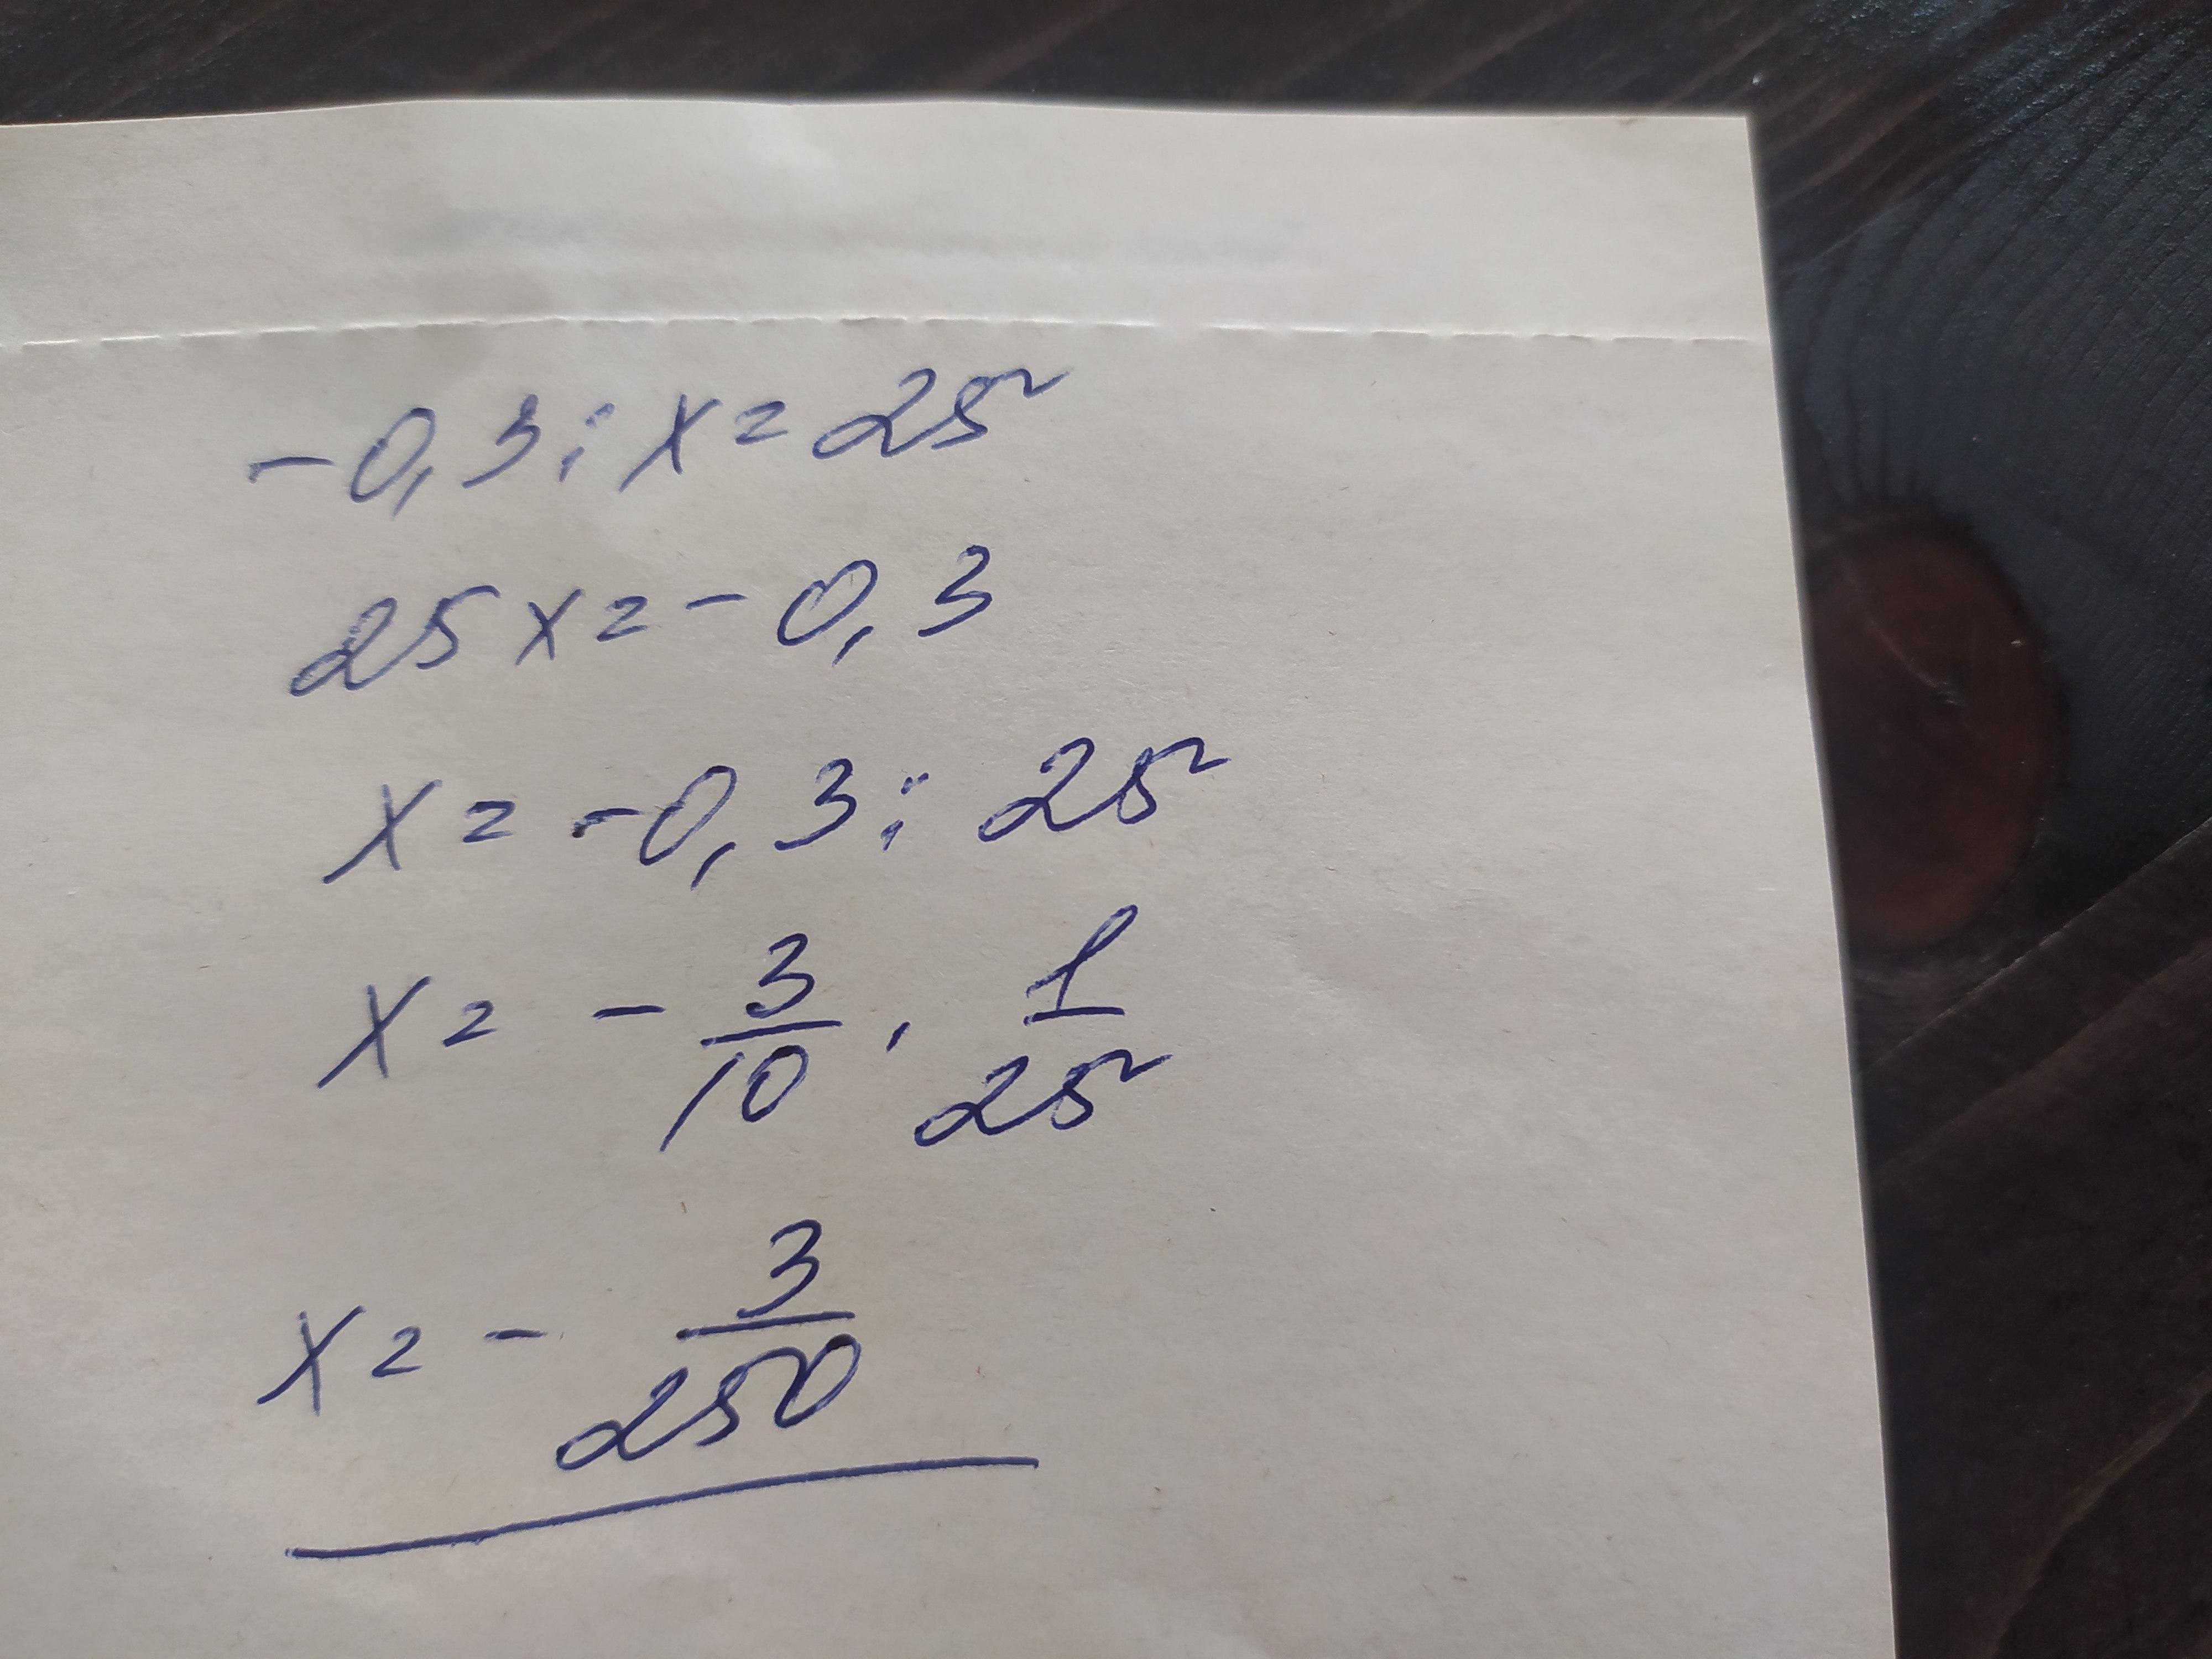 -0,3 : x = 25
25x = -0,3
x = -0,3 : 25
x = - 3/10 · 1/25
x = - 3/250